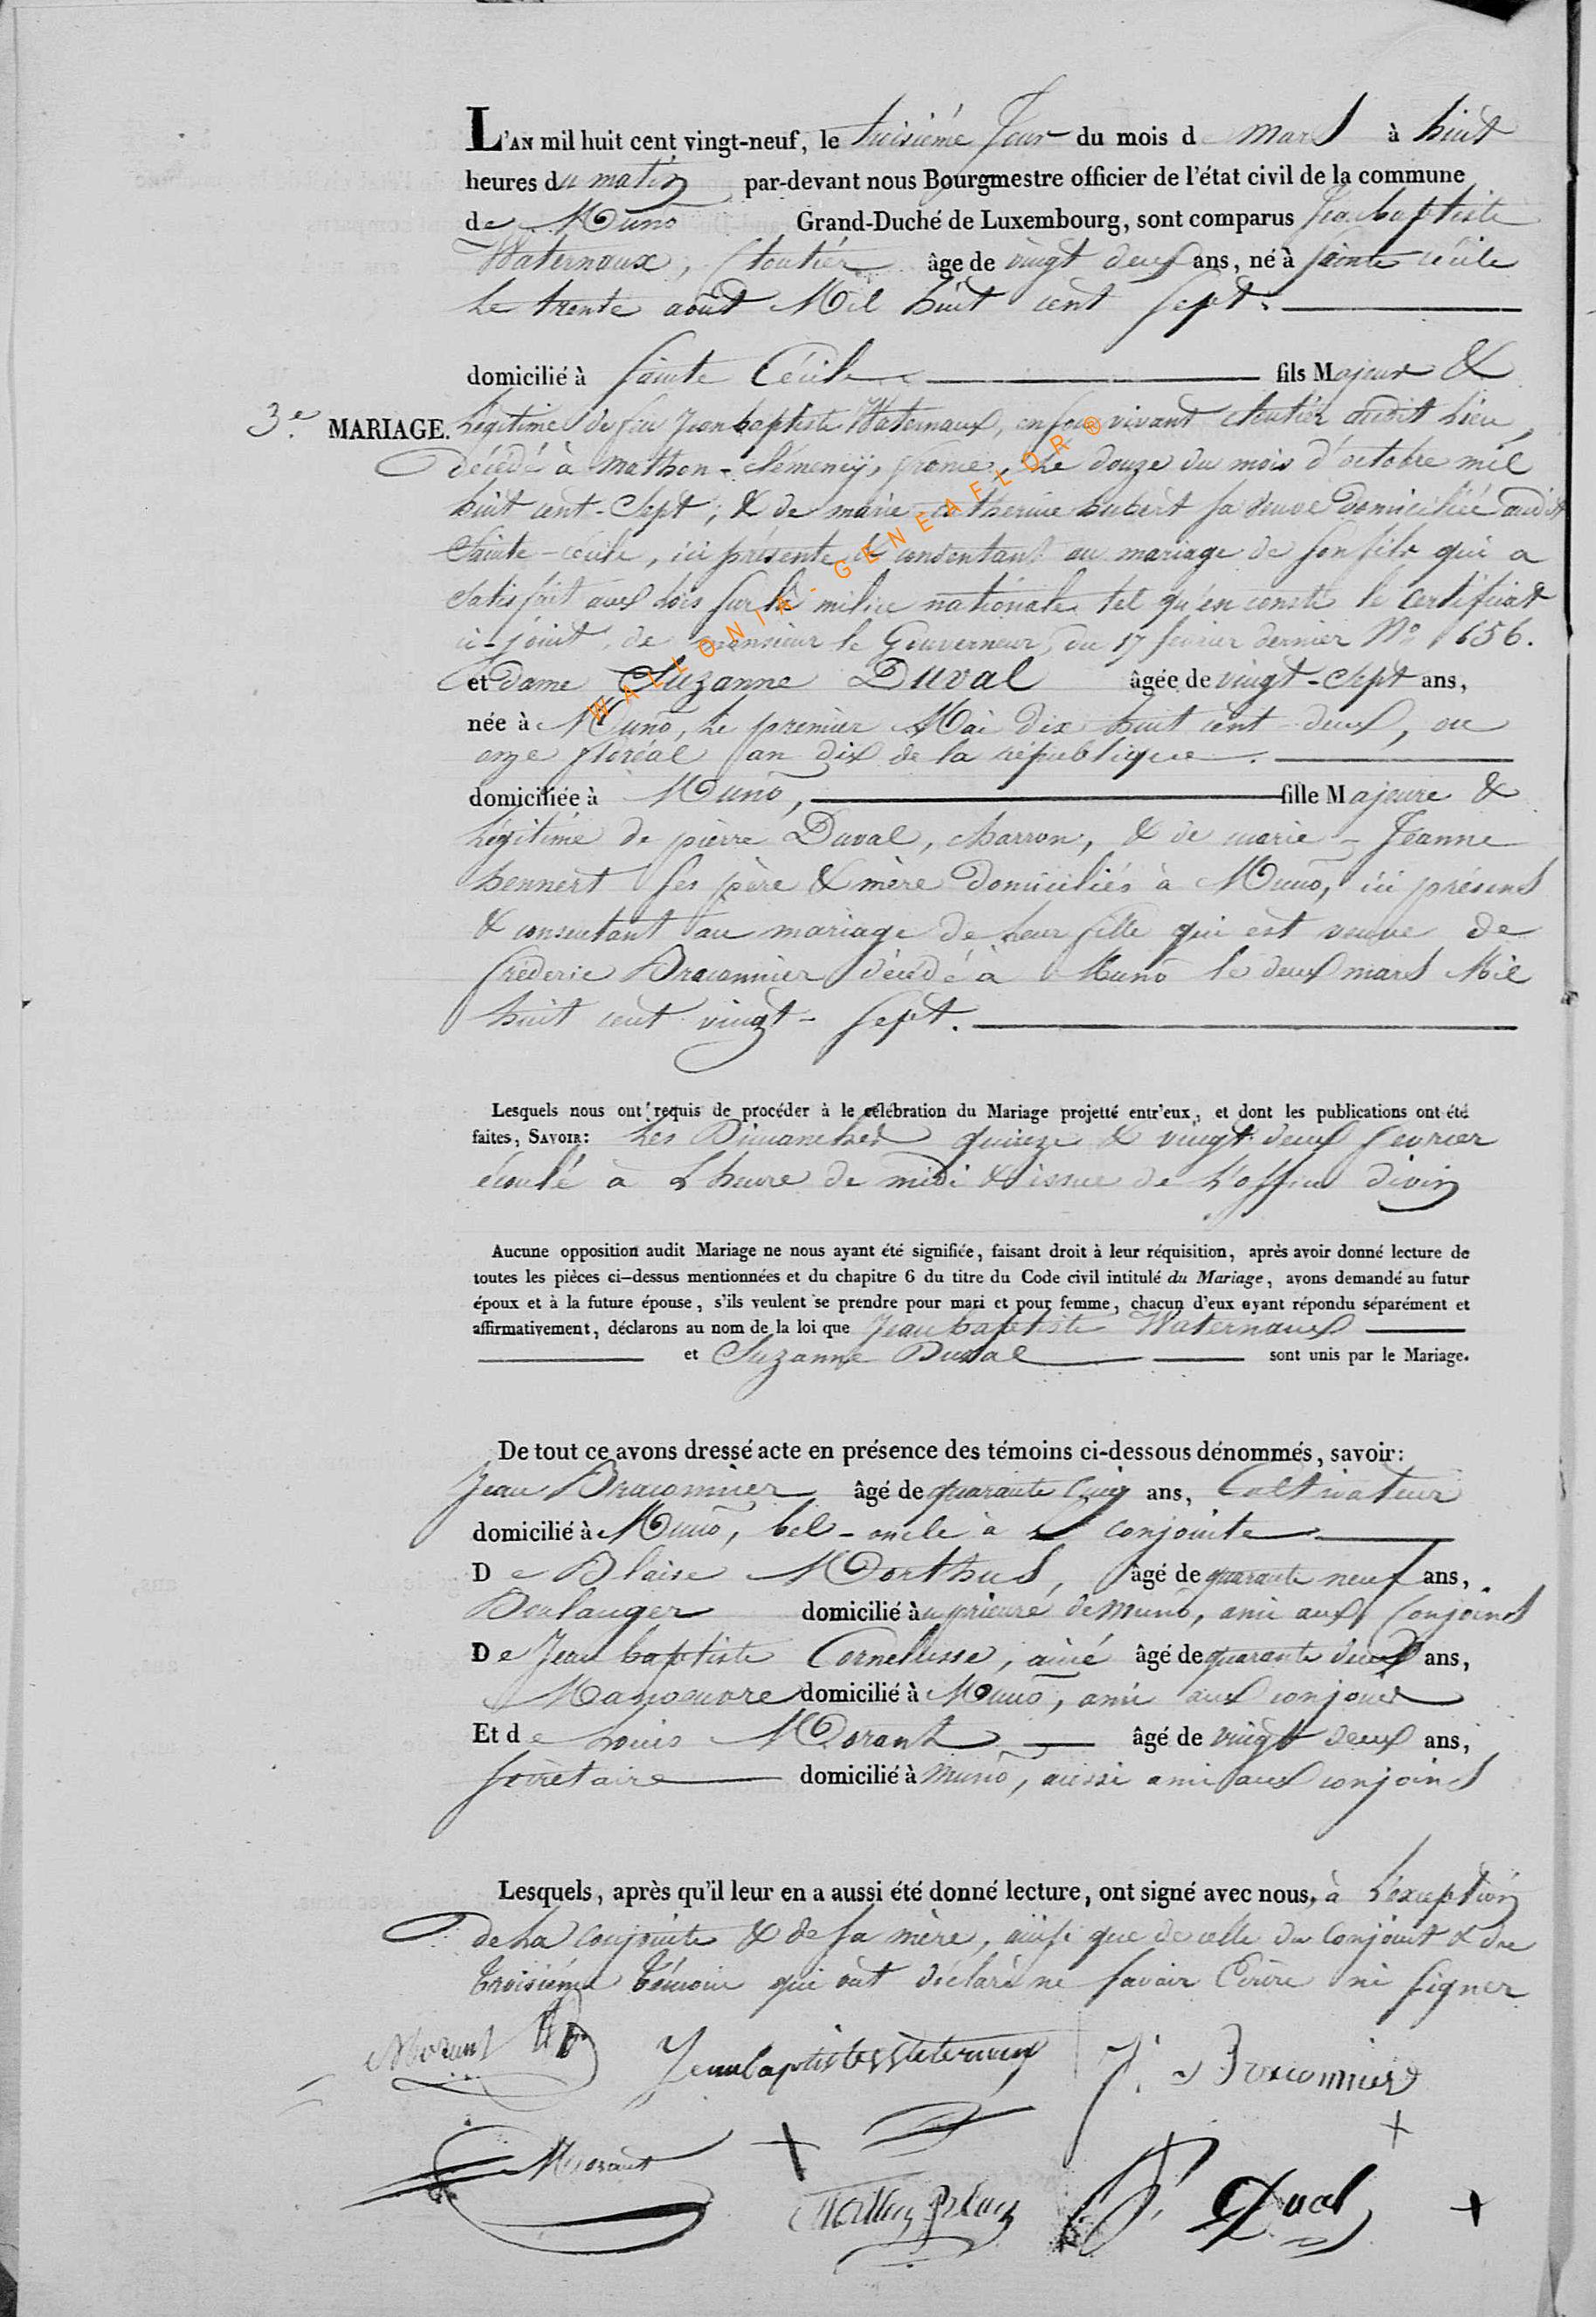 L'AN mil huit cent vingt-neuf, le troisiéme Jour du mois de Mars à huit
heures du matin par-devant nous Bourgmestre officier de l'état civil de la commune
de Muno Grand-Duché de Luxembourg, sont comparus Jea. baptiste
Waternaux, Cloutiér âge de vingt deux ans, né à Sainte cécile
le trente août Mil huit cent Sept.
domicilié à Sainte Cécile fils Majeur &
3e. MARIAGE. Légitime de feu Jean baptiste Waternaux, en son vivant cloutiér audit Lieu,
décédé à mathon-clémency, france, Le douze du mois d'octobre mil
huit cent-Sept; & de marie catherine hubert sa veuve Domiciliée audit
Sainte-cécile, ici présente & consentant au mariage de son fils qui a
Satisfait aux Lois sur la milice nationale tel qu'en conste le Certificat
ci-joint de monsieur le Gouverneur, du 17 fevrier dernier No. 1656.
et dame Suzanne Duval âgée de vingt-Sept ans,
née à Muno, Le premier Mai dix huit cent deux, ou
onze floréal an dix de la république.
domiciliée à Muno, fille Majeure &
Légitime de pierre Duval, charron, & de marie-Jeanne
hennert Ses père & mère Domiciliés à Muno, ici présens
& consentant au mariage de Leur fille qui est veuve de
fréderic Braconnier décédé à Muno le deux mars Mil
huit cent vingt-Sept.
Lesquels nous ont requis de procéder à le célébration du Mariage projetté entr'eux, et dont les publications ont été
faites, SAVOIR: Les Dimanches quinze & vingt deux fevrier
écoulé à L'heure de midi & issue de L'office divin
Aucune opposition audit Mariage ne nous ayant été signifiée, faisant droit à leur réquisition, après avoir donné lecture de
toutes les pièces ci-dessus mentionnées et du chapitre 6 du titre du Code civil intitulé du Mariage, avons demandé au futur
époux et à la future épouse, s'ils veulent se prendre pour mari et pour femme, chacun d'eux ayant répondu séparément et
affirmativement, déclarons au nom de la loi que Jean baptiste Waternaux
et Suzanne Duval sont unis par le Mariage.
De tout ce avons dressé acte en présence des témoins ci-dessous dénommés, savoir:
Jean Braconnier âgé de quarante Cinq ans, Cultivateur
domicilié à Muno, bel-oncle à L conjointe
De Blaise Morthus, âgé de quarante neuf ans,
Boulanger domicilié au prieuré de Muno, ami aux Conjoins
De Jean baptiste Cornelisse, ainé âgé de quarante deux ans,
Manoeuvre domicilié à Muno, ami aux conjoins
Et de Louis Morant âgé de vingt deux ans,
Sécretaire domicilié à Muno, aussi ami aux conjoins
Lesquels, après qu'il leur en a aussi été donné lecture, ont signé avec nous, à L'exception
de La conjointe & de Sa mère, ainsi que de celle du Conjoint & du
troisiéme témoin qui ont déclaré ne Savoir Ecrire ni Signer
Morant Jeanbaptiste Waternaux J. Braconnier
Morant P. Duval
WALLONIA - GENEAFLOR ®